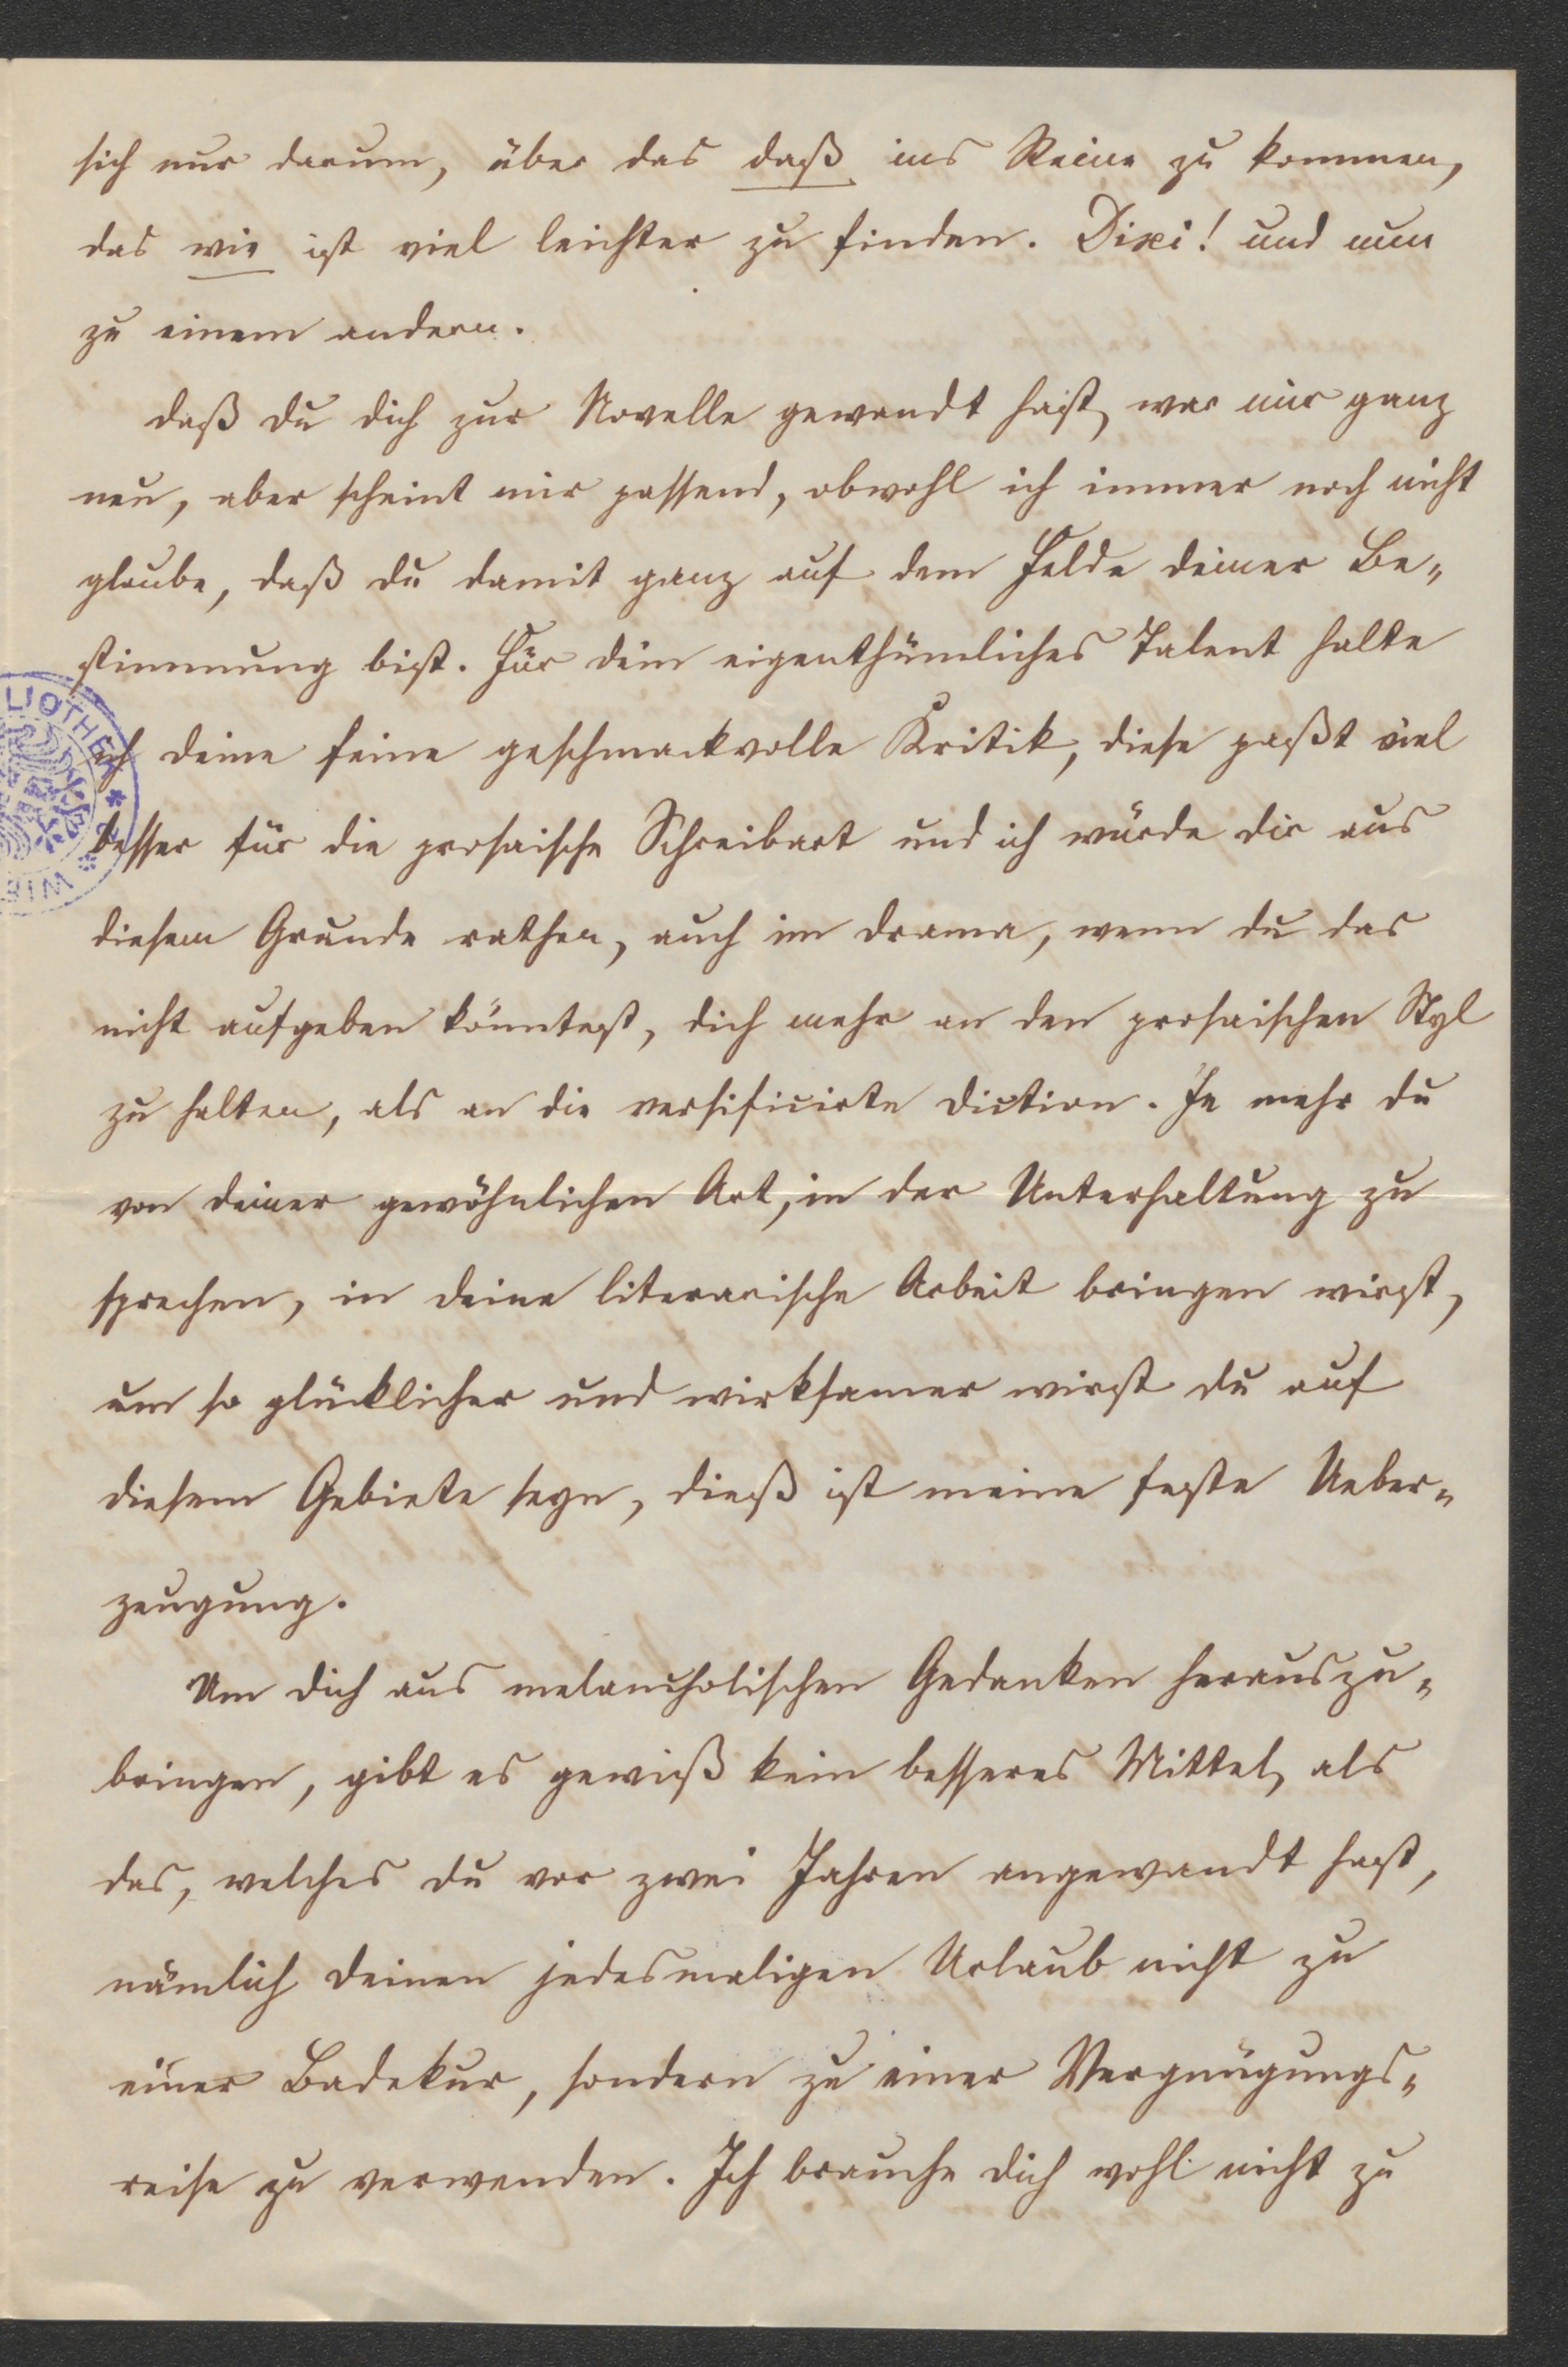 sich nur darum, über das daß ins Reine zu kommen,
das wie ist viel leichter zu finden. Dixi! und nun
zu einem andern.
daß du dich zur Novelle gewandt hast, war mir ganz
neu, aber scheint mir passend, obwohl ich immer noch nicht
glaube, daß du damit ganz auf dem Felde deiner Be-
stimmung bist. Für dein eigenthümliches Talent halte
ich deine feine geschmackvolle Kritik, diese paßt viel
besser für die prosaische Schreibart und ich würde dir aus
diesem Grunde rathen, auch im Drama, wenn du das
nicht aufgeben könntest, dich mehr an den prosaischen Styl
zu halten, als an die versificirte Diction. Je mehr du
von deiner gewöhnlichen Art, in der Unterhaltung zu
sprechen, in deine literarische Arbeit bringen wirst,
um so glücklicher und wirksamer wirst du auf
diesem Gebiete seyn, dieß ist meine feste Ueber-
zeugung.
Um dich aus melancholischen Gedanken herauszu-
bringen, gibt es gewiß kein besseres Mittel, als
das, welches du vor zwei Jahren angewandt hast,
nämlich deinen jedesmaligen Urlaub nicht zu
einer Badekur, sondern zu einer Vergnügungs-
reise zu verwenden. Ich brauche dich wohl nicht zu
LIOTHEK
WIE